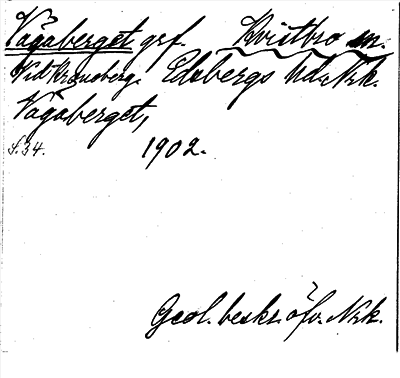 Vågaberget grf. Kvistbro sn.
Vid Kronoberg. Edsbergs hd. Nrk.
Vågaberget,
S. 34. 1902.
Geol. beskr. öfv. Nrk.